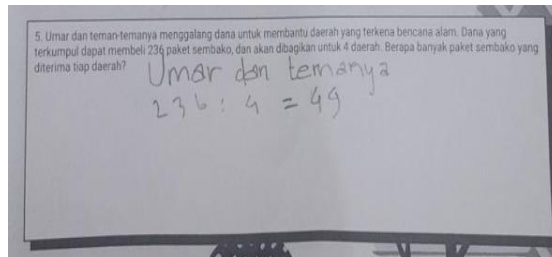 5. Umar dan teman-temanya menggalang dana untuk membantu daerah yang terkena bencana alam. Dana yang
terkumpul dapat membeli 236 paket sembako, dan akan dibagikan untuk 4 daerah. Berapa banyak paket sembako yang
diterima tiap daerah?
Umar dan temanya
236 : 4 = 49